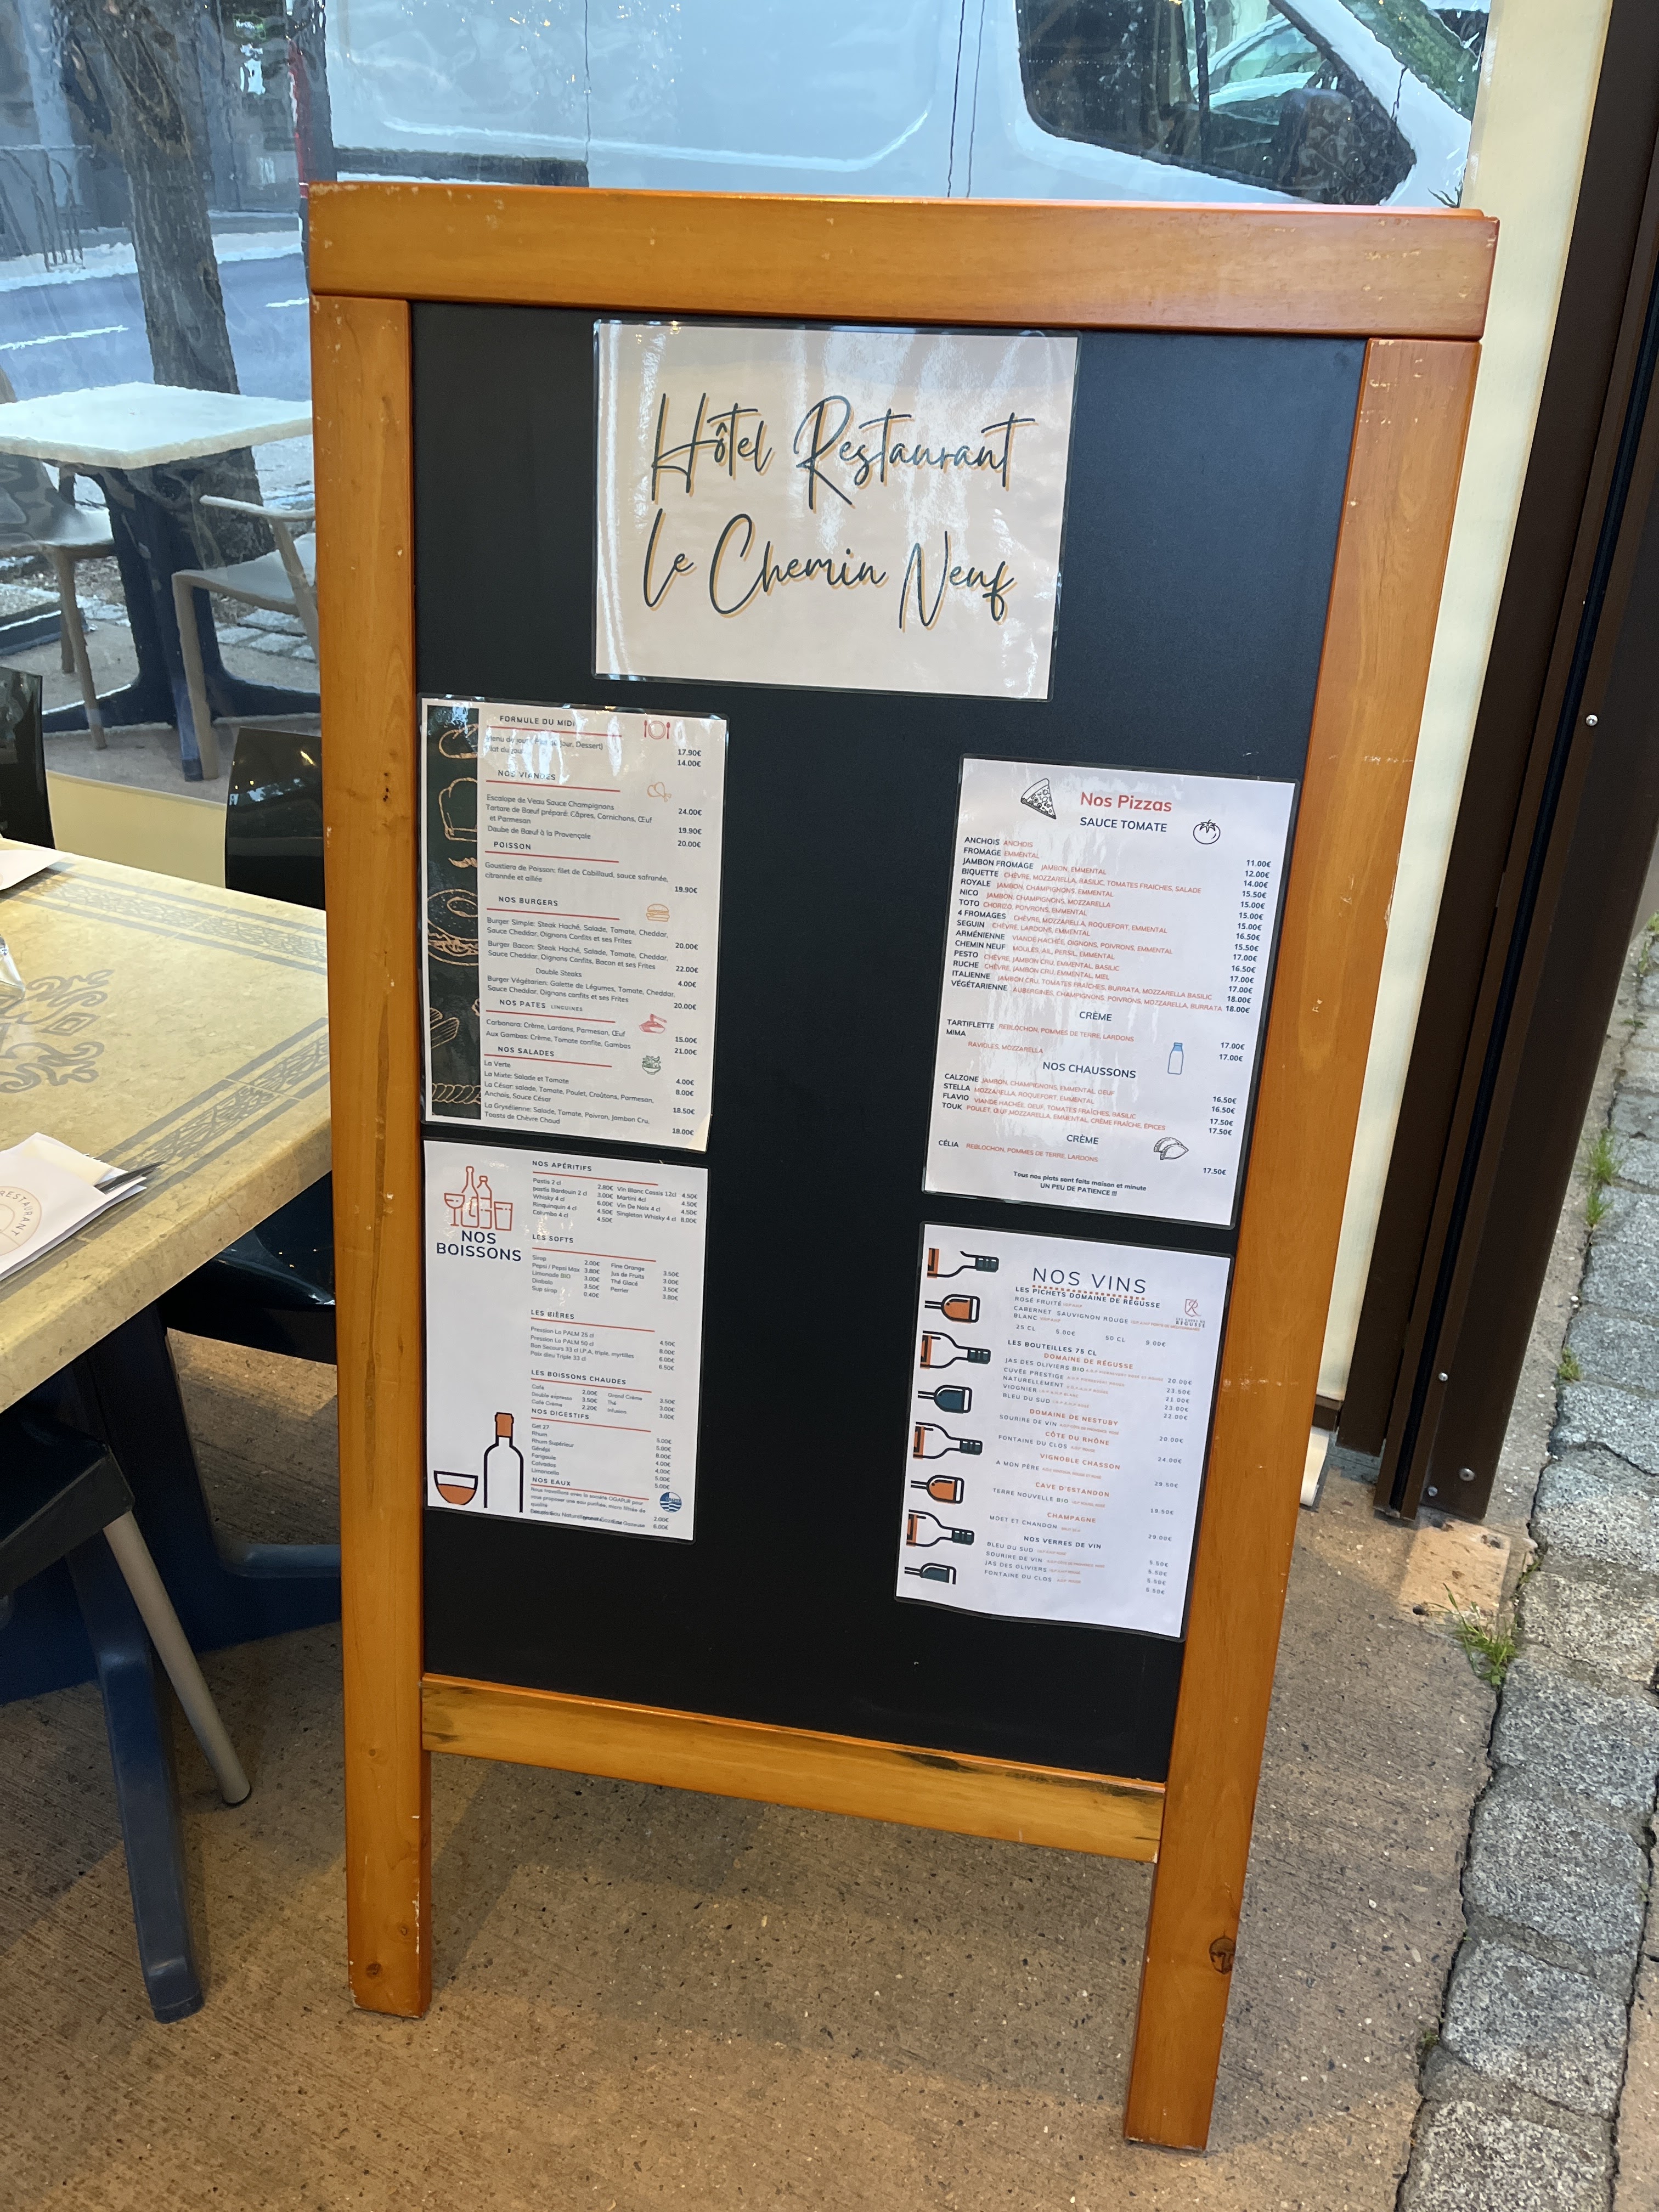 Hôtel Restaurant
Le Chemin Neuf
FORMULE DU MIDI
Jour, Dessert) 17.90€
Plat du jour 14.00€
NOS VIANDES
Escalope de Veau Sauce Champignons 24.00€
Tartare de Bœuf préparé: Câpres, Cornichons, Œuf
et Parmesan 19.90€
Daube de Bœuf à la Provençale 20.00€
POISSON
Goustiero de Poisson: filet de Cabillaud, sauce safranée,
citronnée et aillée 19.90€
NOS BURGERS
Burger Simple: Steak Haché, Salade, Tomate, Cheddar,
Sauce Cheddar, Oignons Confits et ses Frites 20.00€
Burger Bacon: Steak Haché, Salade, Tomate, Cheddar,
Sauce Cheddar, Oignons Confits, Bacon et ses Frites 22.00€
Double Steaks 4.00€
Burger Végétarien: Galette de Légumes, Tomate, Cheddar,
Sauce Cheddar, Oignons confits et ses Frites 20.00€
NOS PATES LINGUINES
Carbonara: Crème, Lardons, Parmesan, Œuf 15.00€
Aux Gambas: Crème, Tomate confite, Gambas 21.00€
NOS SALADES
La Verte 4.00€
La Mixte: Salade et Tomate 8.00€
La César: salade, Tomate, Poulet, Croûtons, Parmesan,
Anchois, Sauce César 18.50€
La Grysélienne: Salade, Tomate, Poivron, Jambon Cru,
Toasts de Chèvre Chaud 18.00€
Nos Pizzas
SAUCE TOMATE
ANCHOIS ANCHOIS 11.00€
FROMAGE EMMENTAL 12.00€
JAMBON FROMAGE JAMBON, EMMENTAL 14.00€
BIQUETTE CHÈVRE, MOZZARELLA, BASILIC, TOMATES FRAICHES, SALADE 15.50€
ROYALE JAMBON, CHAMPIGNONS, EMMENTAL 15.00€
NICO JAMBON, CHAMPIGNONS, MOZZARELLA 15.00€
TOTO CHORIZO, POIVRONS, EMMENTAL 15.00€
4 FROMAGES CHÈVRE, MOZZARELLA, ROQUEFORT, EMMENTAL 16.50€
SEGUIN CHÈVRE, LARDONS, EMMENTAL 15.50€
ARMÉNIENNE VIANDE HACHÉE, OIGNONS, POIVRONS, EMMENTAL 17.00€
CHEMIN NEUF MOULES, AIL, PERSIL, EMMENTAL 16.50€
PESTO CHÈVRE, JAMBON CRU, EMMENTAL, BASILIC 17.00€
RUCHE CHÈVRE, JAMBON CRU, EMMENTAL, MIEL 17.00€
ITALIENNE JAMBON CRU, TOMATES FRAÎCHES, BURRATA, MOZZARELLA BASILIC 18.00€
VÉGÉTARIENNE AUBERGINES, CHAMPIGNONS, POIVRONS, MOZZARELLA, BURRATA 18.00€
CRÈME
TARTIFLETTE REBLOCHON, POMMES DE TERRE, LARDONS 17.00€
MIMA RAVIOLES, MOZZARELLA 17.00€
NOS CHAUSSONS
CALZONE JAMBON, CHAMPIGNONS, EMMENTAL, OEUF 16.50€
STELLA MOZZARELLA, ROQUEFORT, EMMENTAL 16.50€
FLAVIO VIANDE HACHÉE, OEUF, TOMATES FRAÎCHES, BASILIC 17.50€
TOUK POULET, ŒUF MOZZARELLA, EMMENTAL, CRÈME FRAÎCHE, ÉPICES 17.50€
CRÈME
CÉLIA REBLOCHON, POMMES DE TERRE, LARDONS 17.50€
Tous nos plats sont faits maison et minute
UN PEU DE PATIENCE !!!
NOS BOISSONS
NOS APÉRITIFS
Pastis 2 cl 2.80€ Vin Blanc Cassis 12cl 4.50€
pastis Bardouin 2 cl 3.00€ Martini 4cl 4.50€
Whisky 4 cl 6.00€ Vin De Noix 4 cl 4.50€
Rinquinquin 4 cl 4.50€ Singleton Whisky 4 cl 8.00€
Columbo 4 cl 4.50€
LES SOFTS
Sirop 2.00€ Fine Orange 3.50€
Pepsi / Pepsi Max 3.80€ Jus de Fruits 3.00€
Limonade BIO 3.00€ Thé Glacé 3.50€
Diabolo 3.50€ Perrier 3.80€
Sup sirop 0.40€
LES BIÈRES
Pression La PALM 25 cl 4.50€
Pression La PALM 50 cl 8.00€
Bon Secours 33 cl I.P.A, triple, myrtilles 6.00€
Paix dieu Triple 33 cl 6.50€
LES BOISSONS CHAUDES
Café 2.00€ Grand Crème 3.50€
Double expresso 3.50€ Thé 3.00€
Café Crème 2.20€ Infusion 3.00€
NOS DIGESTIFS
Get 27 5.00€
Rhum 5.00€
Rhum Supérieur 8.00€
Génépi 4.00€
Fangoule 4.00€
Calvados 5.00€
Limoncello 5.00€
NOS EAUX
Nous travaillons avec la société OGAPUR pour
vous proposer une eau purifiée, micro filtrée de
qualité
2.00€
6.00€
NOS VINS
LES PICHETS DOMAINE DE RÉGUSSE
ROSÉ FRUITÉ
CABERNET SAUVIGNON ROUGE
BLANC
25 CL 5.00€ 50 CL 9.00€
LES BOUTEILLES 75 CL
DOMAINE DE RÉGUSSE
JAS DES OLIVIERS BIO 20.00€
CUVÉE PRESTIGE 23.50€
NATURELLEMENT 21.00€
VIOGNIER 23.00€
BLEU DU SUD 22.00€
DOMAINE DE NESTUBY
SOURIRE DE VIN 20.00€
CÔTE DU RHÔNE
FONTAINE DU CLOS 24.00€
VIGNOBLE CHASSON
A MON PÈRE 29.50€
CAVE D'ESTANDON
TERRE NOUVELLE BIO 19.50€
CHAMPAGNE
MOET ET CHANDON 29.00€
NOS VERRES DE VIN
BLEU DU SUD 5.50€
SOURIRE DE VIN 5.50€
JAS DES OLIVIERS 5.50€
FONTAINE DU CLOS 5.50€
RESTAURANT